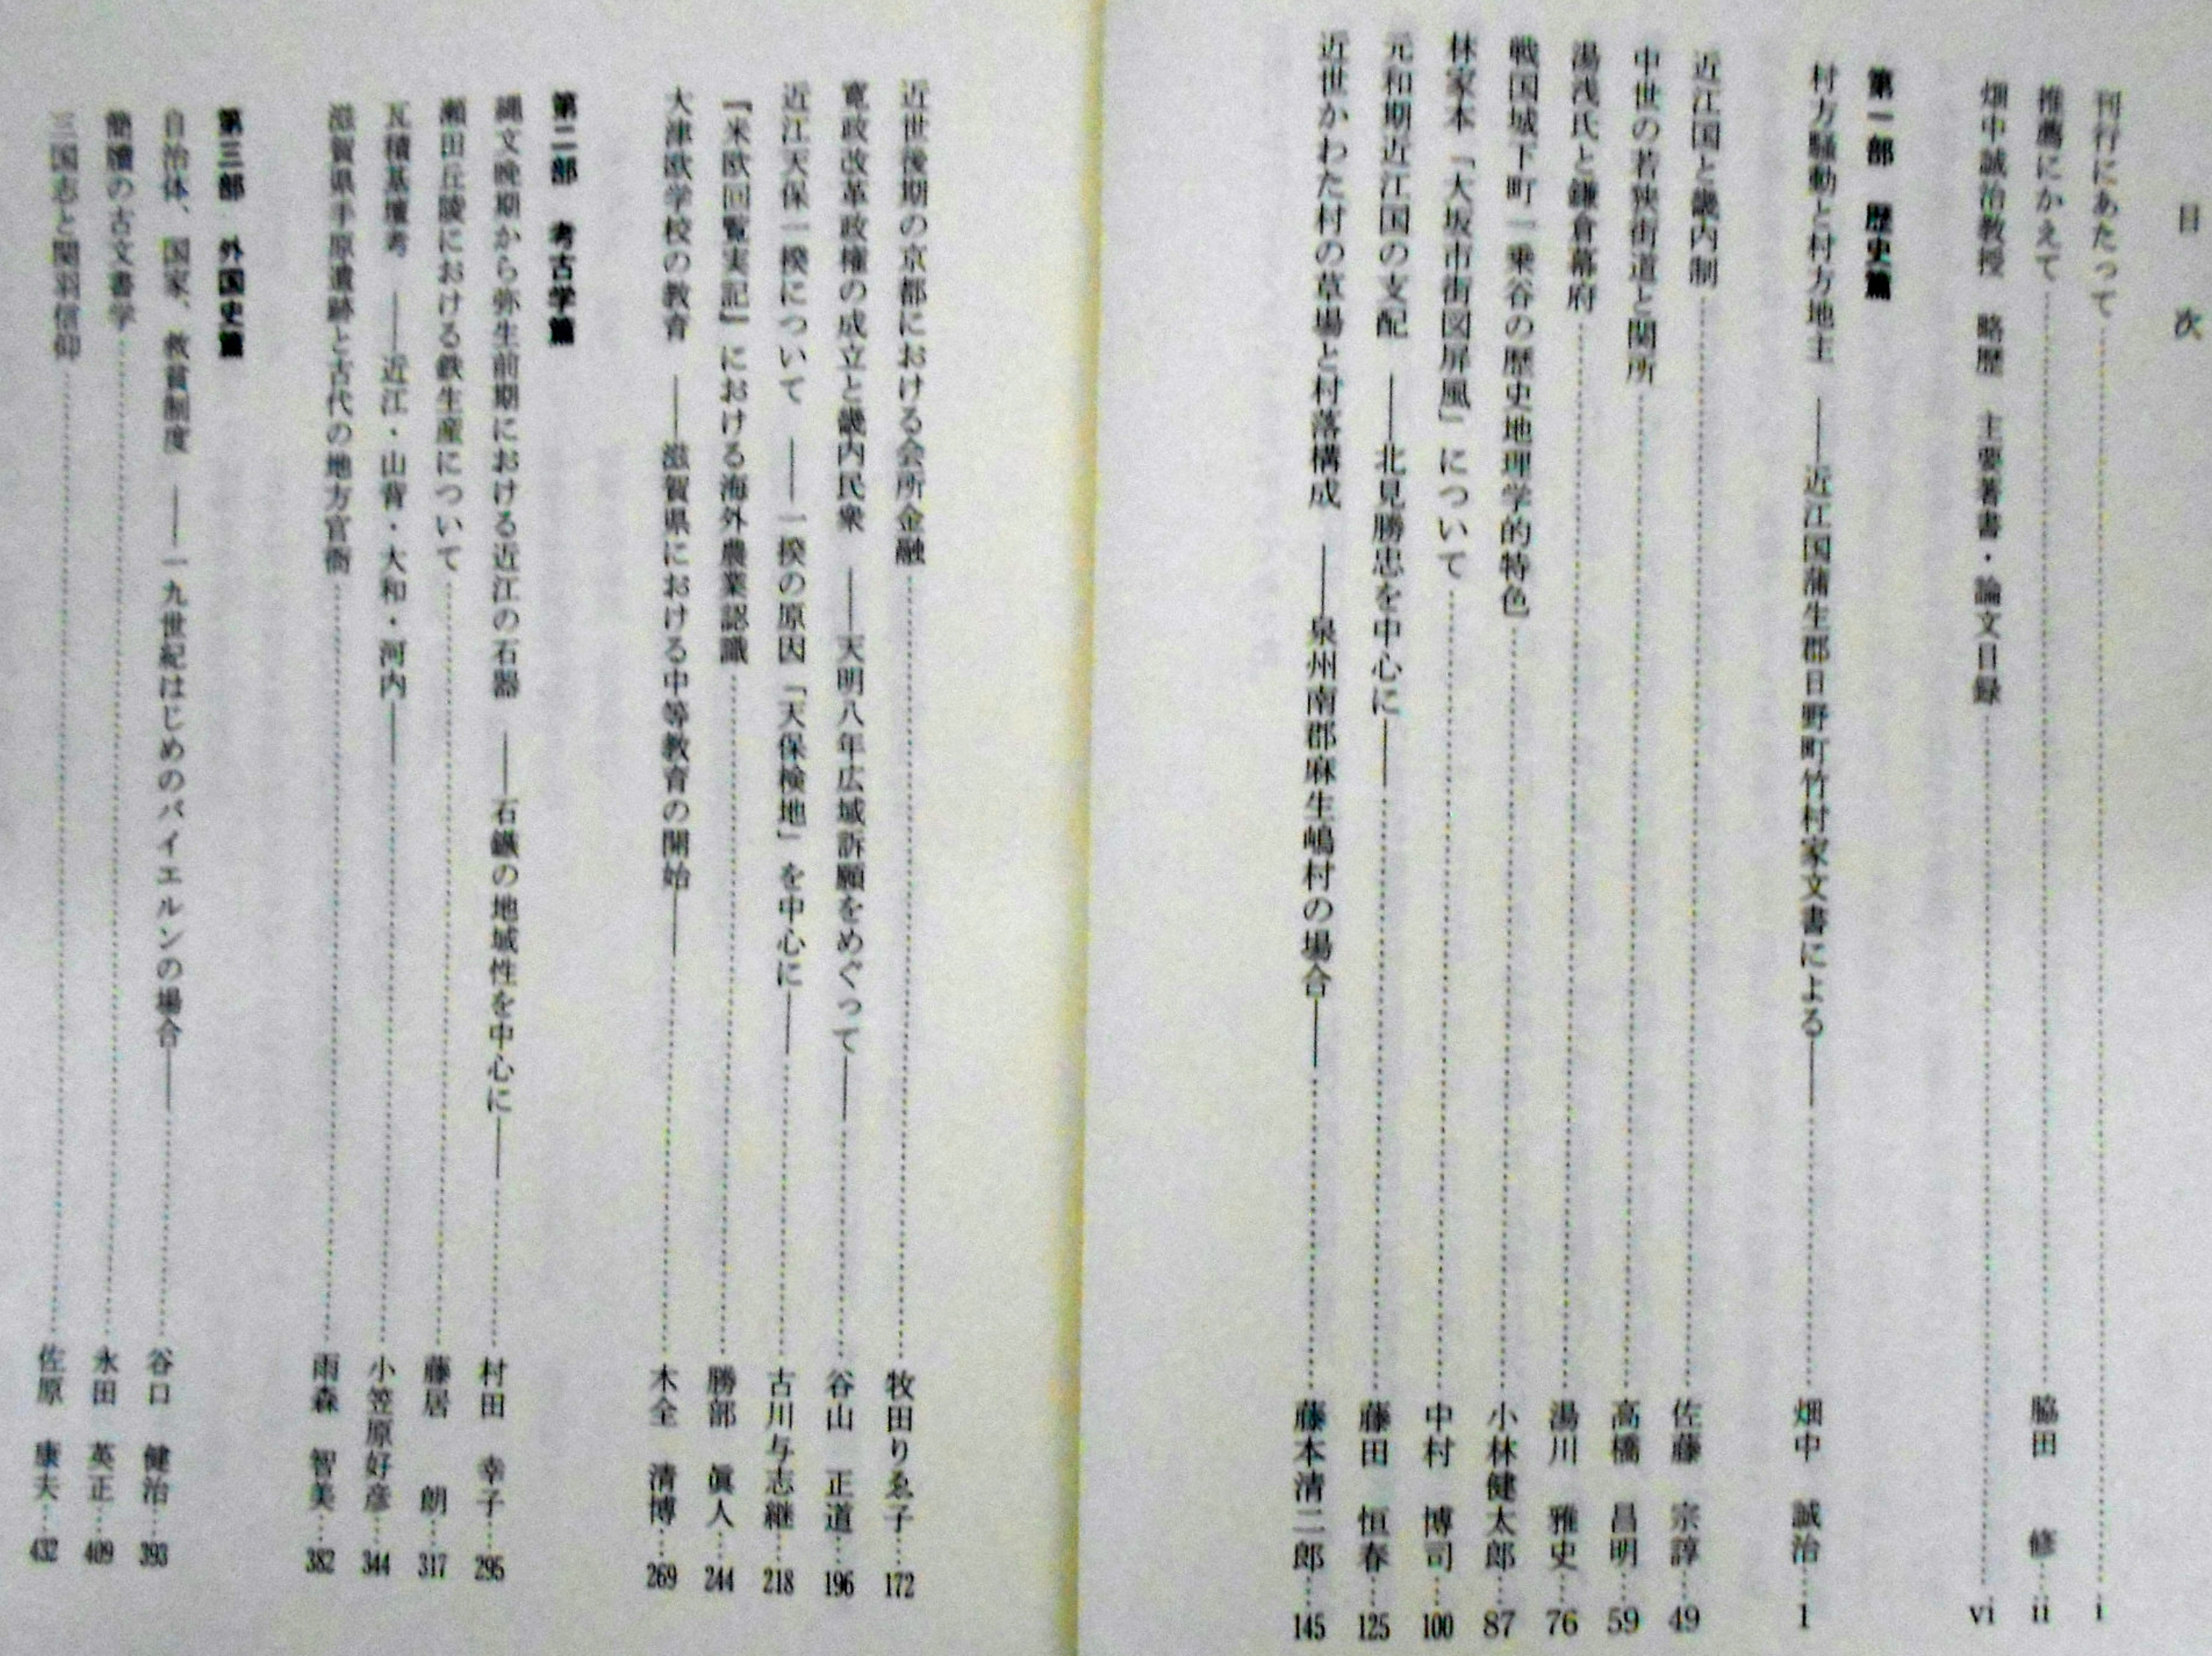 目次
刊行にあたって…i
推薦にかえて…脇田 修…ii
畑中誠治教授 略歴 主要著書・論文目録…vi
第一部 歴史篇
村方騒動と村方地主 ――近江国蒲生郡日野町竹村家文書による――…畑中 誠治…1
近江国と畿内制…佐藤 宗諄…49
中世の若狭街道と関所…高橋 昌明…59
湯浅氏と鎌倉幕府…湯川 雅史…76
戦国城下町一乗谷の歴史地理学的特色…小林健太郎…87
林家本「大坂市街図屏風」について…中村 博司…100
元和期近江国の支配 ――北見勝忠を中心に――…藤田 恒春…125
近世かわた村の草場と村落構成 ――泉州南郡麻生嶋村の場合――…藤本清二郎…145
近世後期の京都における会所金融…牧田りゑ子…172
寛政改革政権の成立と畿内民衆 ――天明八年広域訴願をめぐって――…谷山 正道…196
近江天保一揆について ――一揆の原因「天保検地」を中心に――…古川与志継…218
『米欧回覧実記』における海外農業認識…勝部 眞人…244
大津欧学校の教育 ――滋賀県における中等教育の開始――…木全 清博…269
第二部 考古学篇
縄文晩期から弥生前期における近江の石器 ――石鏃の地域性を中心に――…村田 幸子…295
瀬田丘陵における鉄生産について…藤居 朗…317
瓦積基壇考 ――近江・山背・大和・河内――…小笠原好彦…344
滋賀県手原遺跡と古代の地方官衙…雨森 智美…382
第三部 外国史篇
自治体、国家、救貧制度 ――一九世紀はじめのバイエルンの場合――…谷口 健治…393
簡牘の古文書学…永田 英正…409
三国志と関羽信仰…佐原 康夫…432